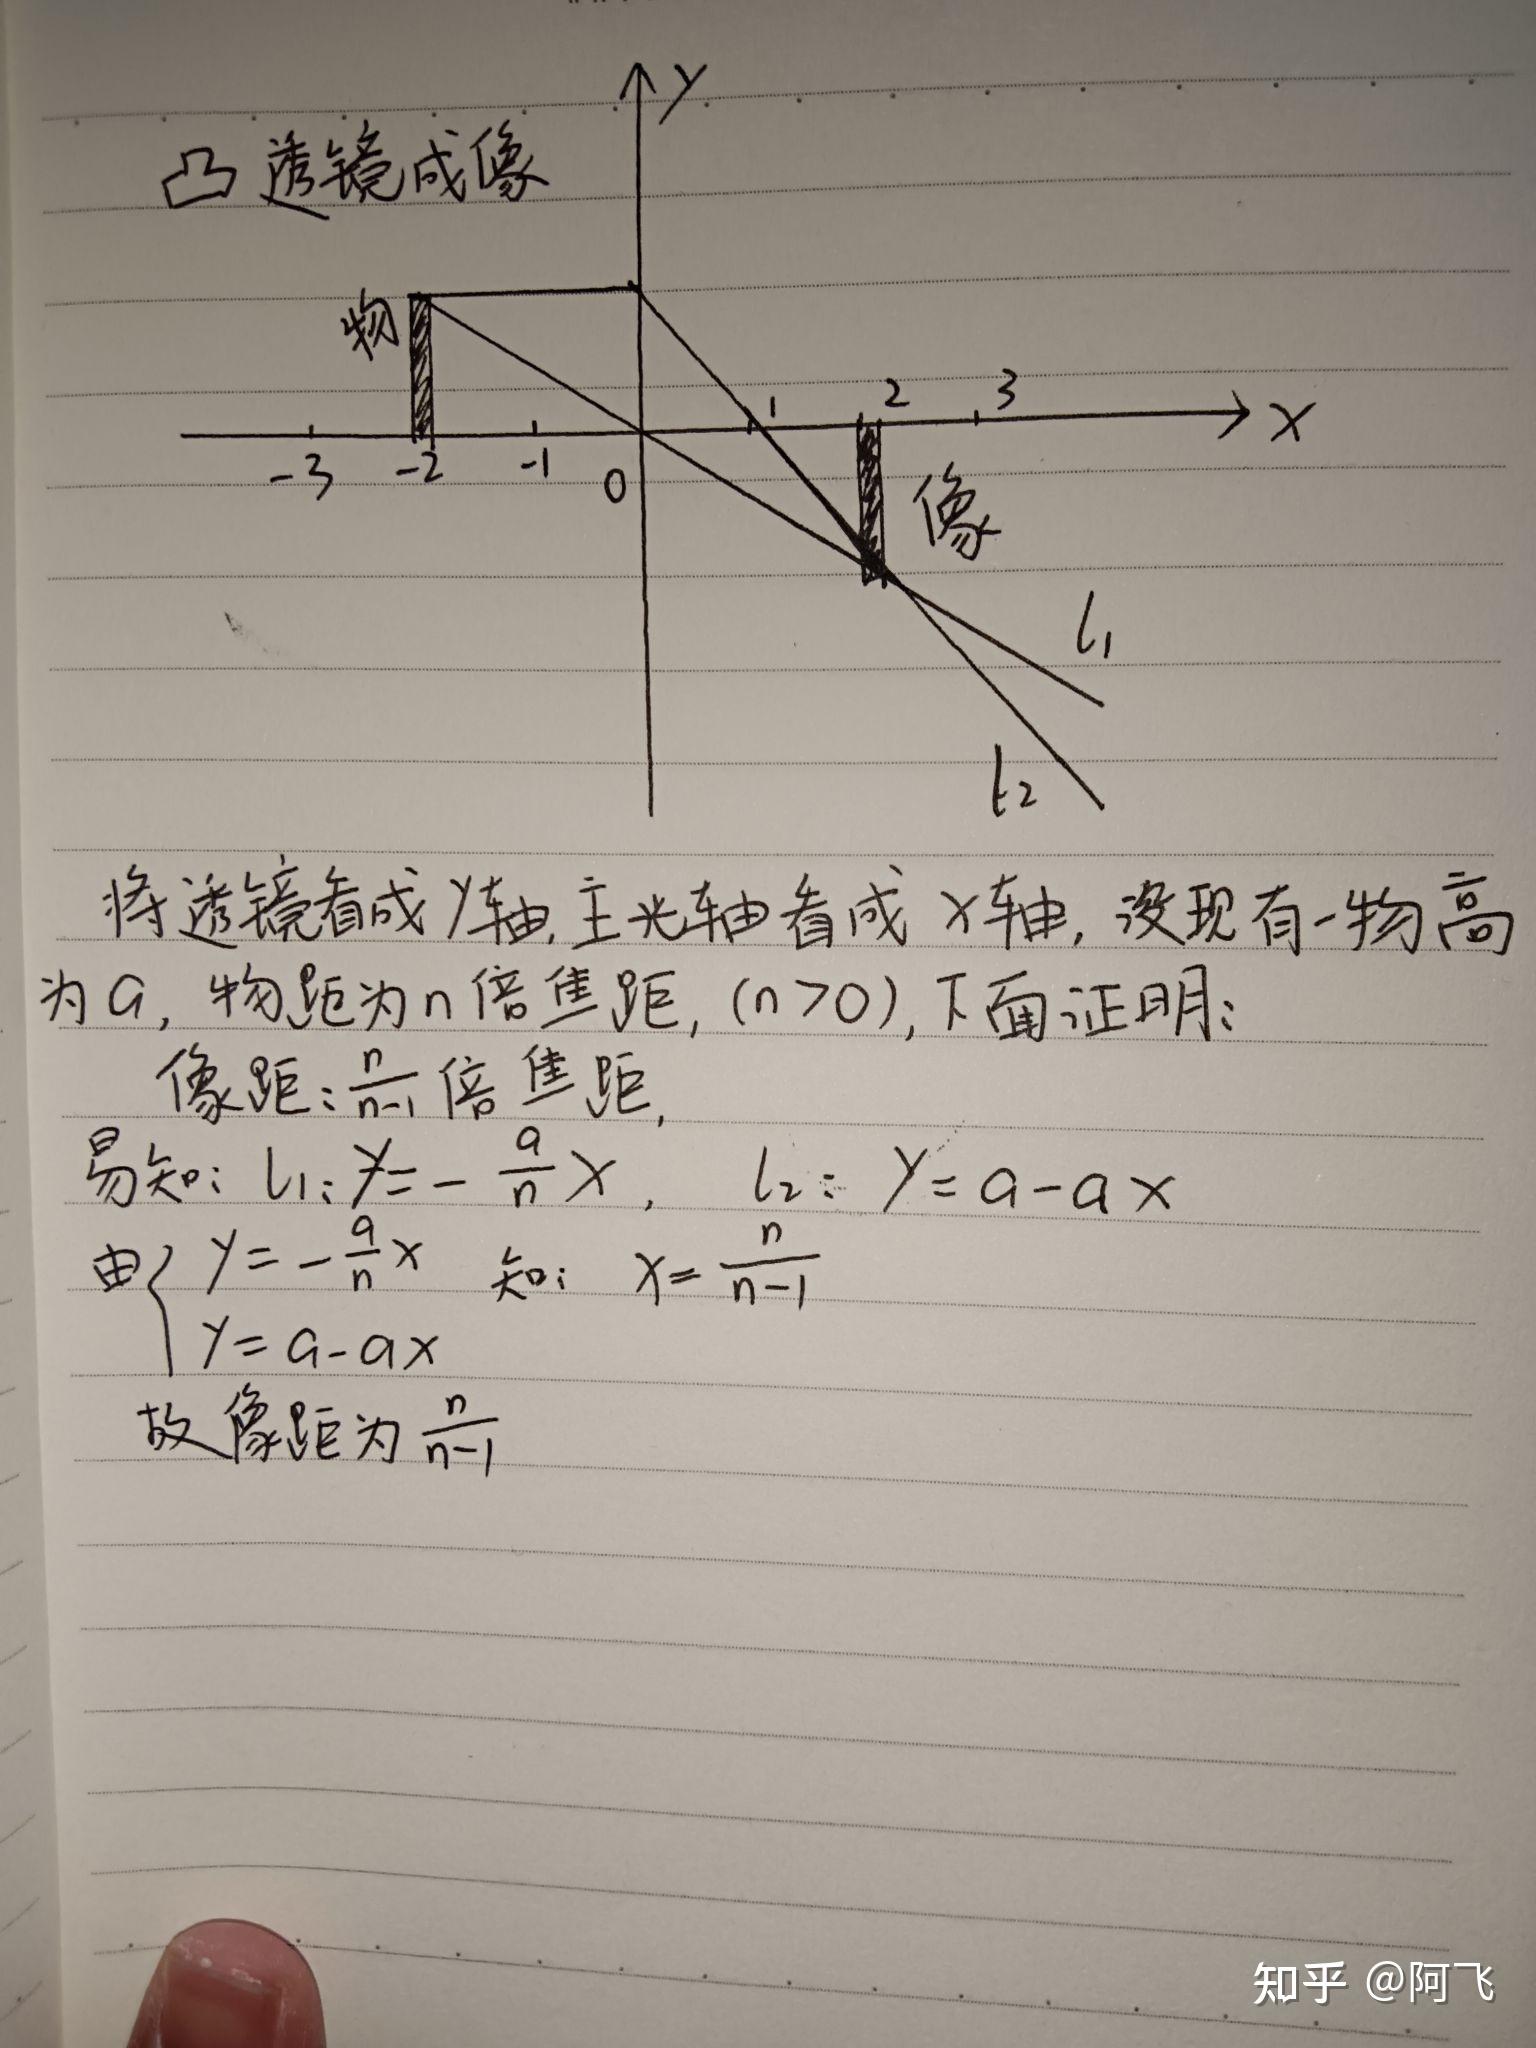 y
凸透镜成像
物
1 2 3
x
-3 -2 -1 0
像
l₁
l₂
将透镜看成y轴,主光轴看成x轴,设现有一物高
为a,物距为n倍焦距,(n>0),下面证明:
像距:n/(n-1)倍焦距,
易知:l₁:y=-a/n x, l₂:y=a-ax
由{y=-a/n x 知:x=n/(n-1)
y=a-ax
故像距为n/(n-1)
知乎 @阿飞